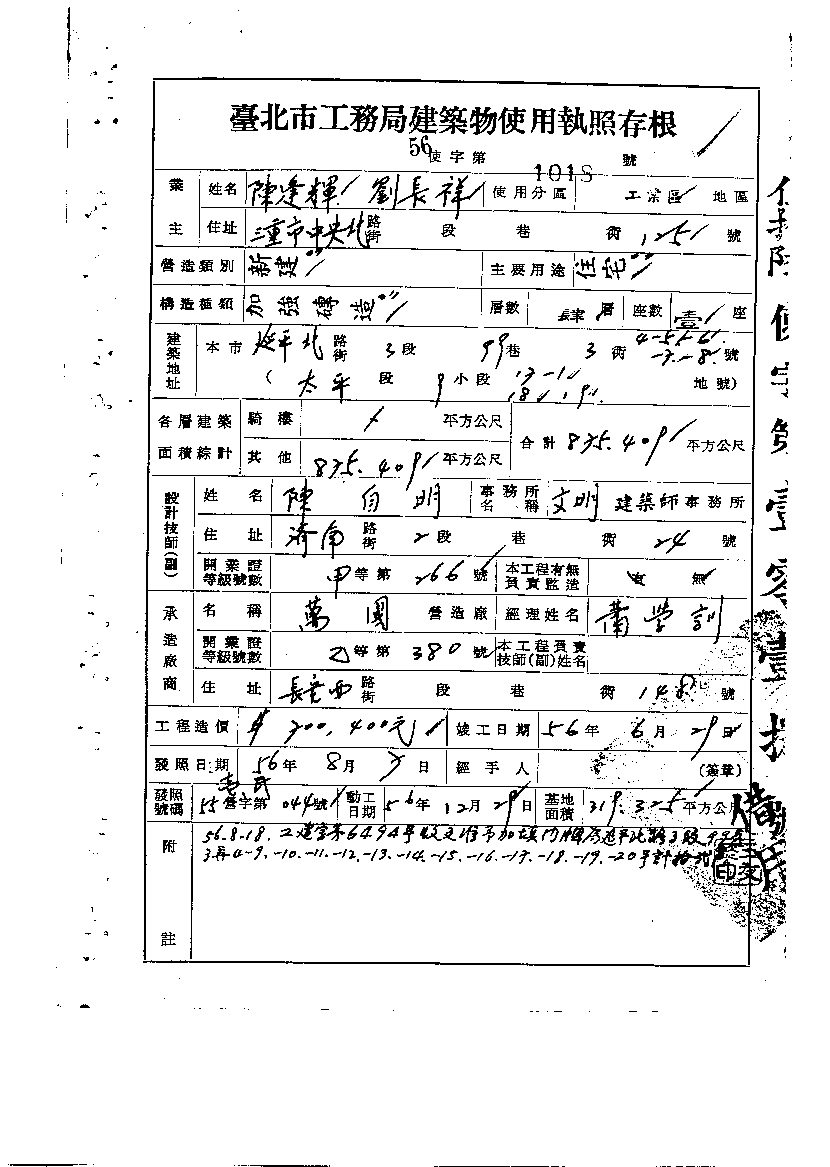 臺北市工務局建築物使用執照存根
56使字第 1018 號
業主 姓名 陳逢輝 劉長祥 使用分區 工業區 地區
住址 三重市中央北路街 段 巷 衖 125 號
營造類別 新建 主要用途 住宅
構造種類 加強磚造 層數 肆層 座數 壹座
建築地址 本市 延平北路街 3段 99巷 3衖 4-5-6-7-8號
(太平段 9小段 17-1 18 19 地號)
各層建築面積綜計 騎樓 平方公尺 合計 835.409 平方公尺
其他 835.409 平方公尺
設計技師(副) 姓名 陳自明 事務所名稱 文明 建築師事務所
住址 濟南路街 2段 巷 衖 24 號
開業證等級號數 甲等第 266 號 本工程有無負責監造 有 無
承造廠商 名稱 萬國 營造廠 經理姓名 蕭學訓
開業證等級號數 乙等第 380 號 本工程負責技師(副)姓名
住址 長安西路街 段 巷 衖 148 號
工程造價 $ 700,400元 竣工日期 56年 6月 29日
發照日期 56年 8月 日 經手人 (簽章)
發照號碼 55營字第 044號 動工日期 56年 12月 29日 基地面積 319.325 平方公尺
附註 56.8.18.工建字第6494號
-9.-10.-11.-12.-13.-14.-15.-16.-17.-18.-19.-20號計
使字第壹零壹